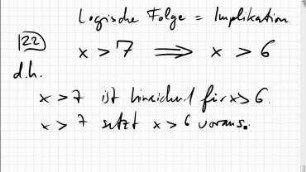 Logische Folge = Implikation
122 x > 7 ⟹ x > 6
d.h.
x > 7 ist hinreichend für x > 6.
x > 7 setzt x > 6 voraus.